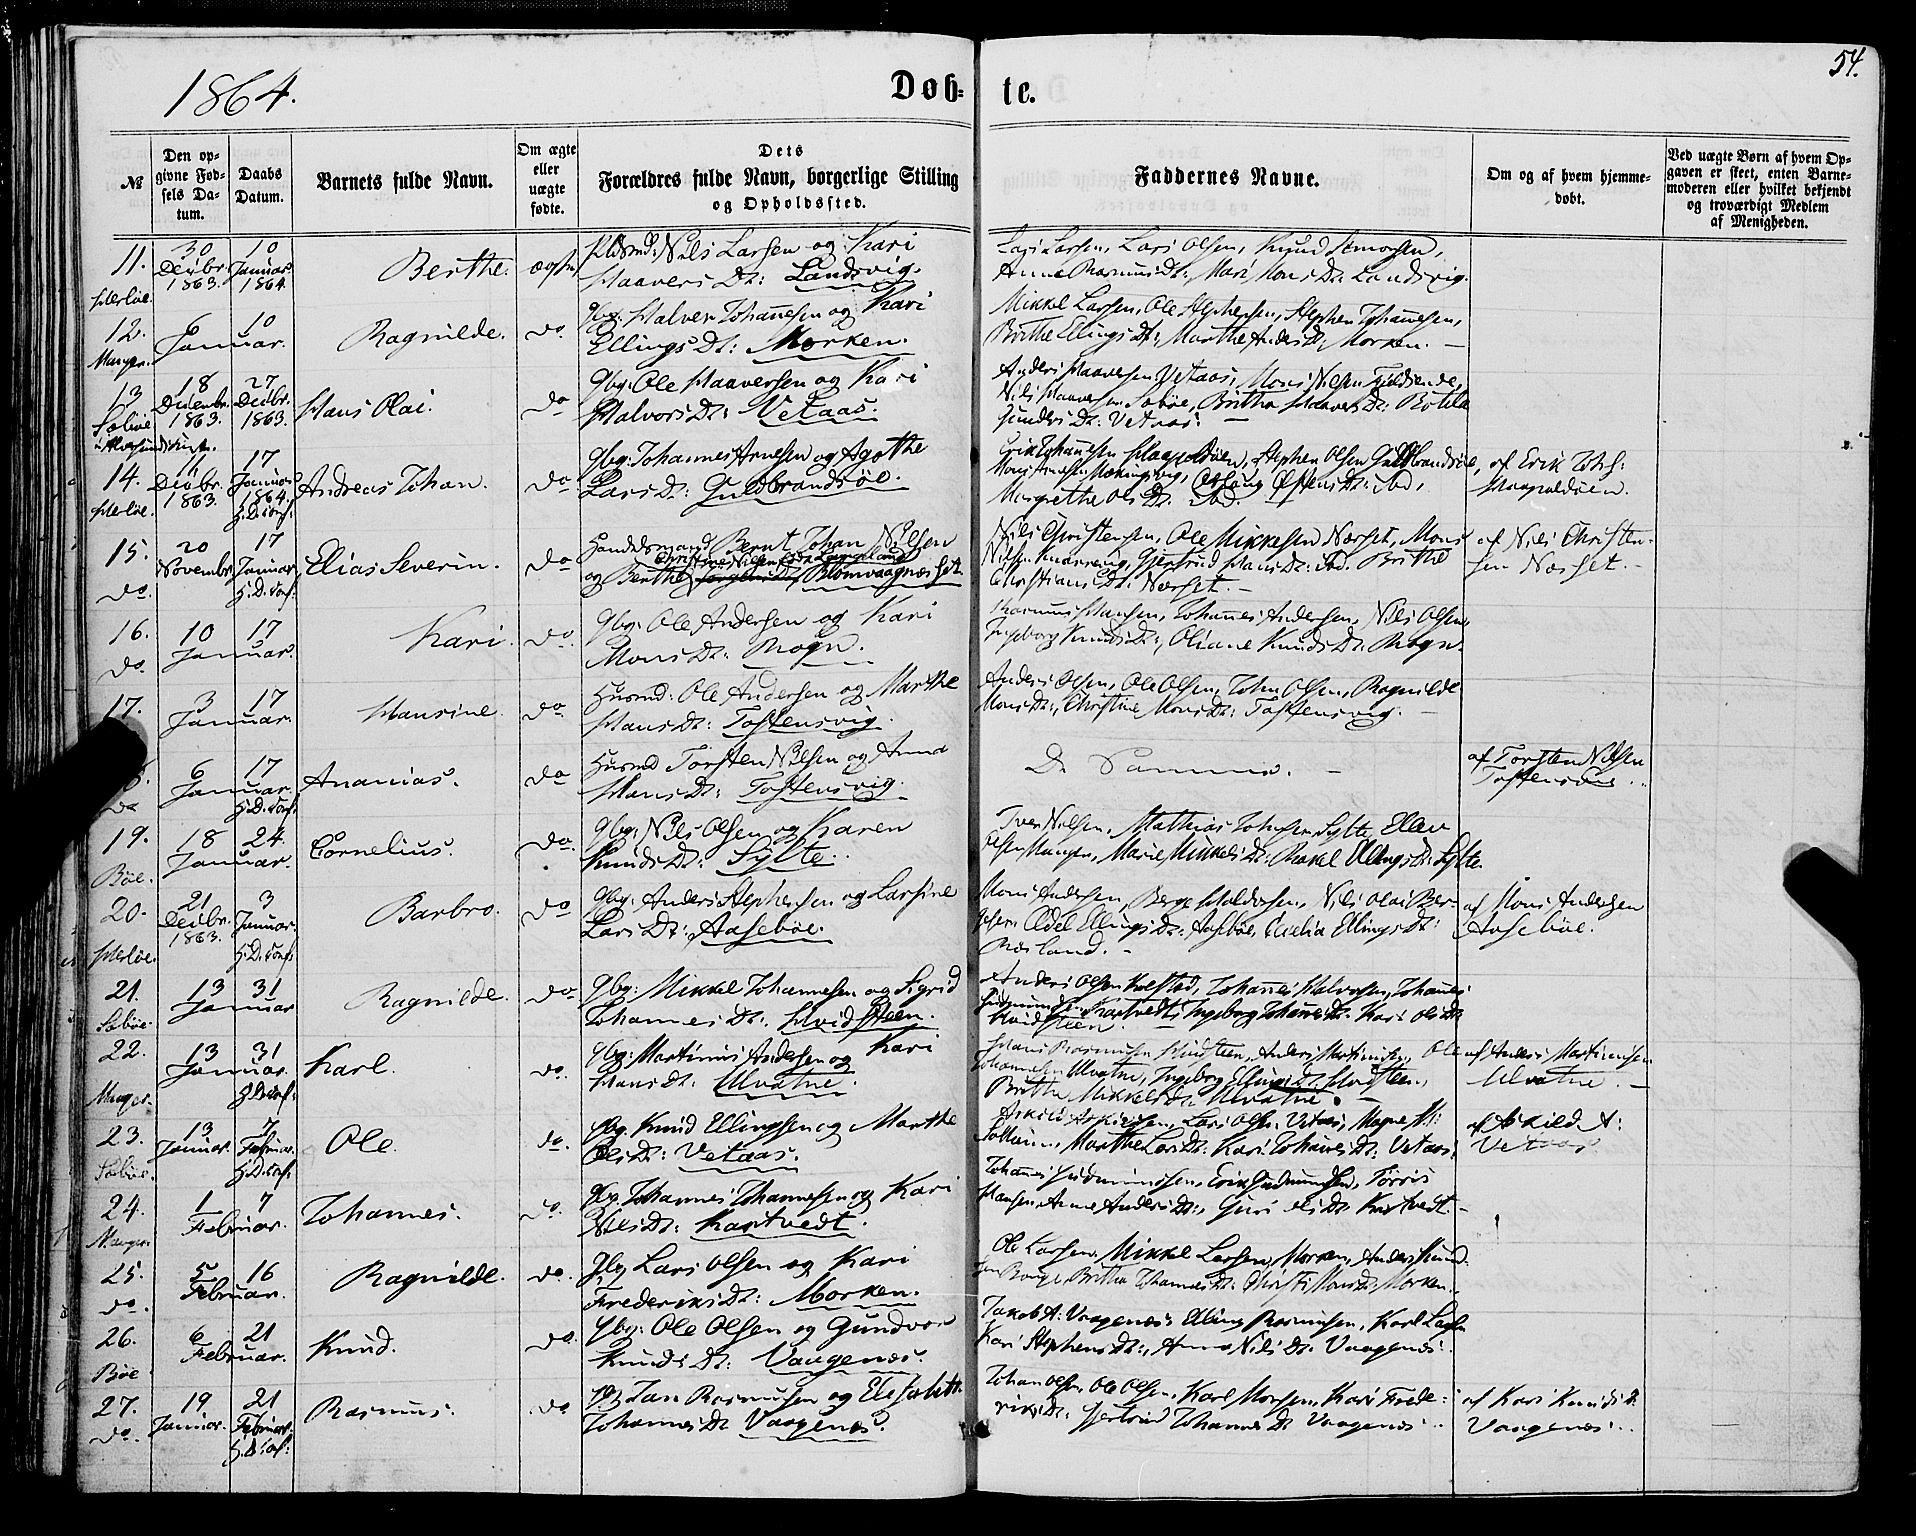 54.
1864.
Døb- te.
№
Den op-
givne Fød-
sels Da-
tum.
Daabs
Datum.
Barnets fulde Navn.
Om ægte
eller
uægte
fødte.
Dets
Forældres fulde Navn, borgerlige Stilling
og Opholdssted.
Faddernes Navne.
Om og af hvem hjemme-
døbt.
Ved uægte Børn af hvem Op-
gaven er skeet, enten Barne-
moderen eller hvilket bekjendt
og troværdigt Medlem
af Menigheden.
11. 30 Decbr. 1863. 10 Januar 1864. Berthe. Nils Larsen og Kari
Herløe. Haavers Dt: Landsvig.
Lars Larsen, Lars Olsen, Knud
Anna Rasmus Dt: Mari Mons Dt: Landsvig.
12. 6 10 Januar. Ragnilde. do Gbg: Halver Johannesen og Kari
Manger. Ellings Dt: Morken.
Mikkel Larsen, Ole Stephensen, Stephen Johannesen,
Brithe Ellings Dt: Marthe Anders Dt: Morken.
13 18 Decembr. 1863. 27 Decbr. 1863. Hans Olai. do Gbg: Ole Haaversen og Kari
Sæbøe Halvors Dt: Vetaas.
Anders Haaversen Vetaas, Mons Nilsen
Nils Haaversen Sæbøe, Britha Haavers Dt: Botilda
Gunders Dt: Vetaas.
14. 11 Decbr. 1863. 17 Januar 1864. H.D. Andreas Johan. do Gbg: Johannes Arnesen og Agathe
Herløe. Lars Dt: Guldbrandsøe.
Erik Johannesen Stephen Olsen Guldbrandsøe,
Mons
Margrethe Ols Dt: ibd.
af Erik Johs:
15. 20 Novembr. 17 Januar H.D. Elias Severin. do Handelsmand Bernt Johan Nilsen
do. og Berthe Christine Blomvaagnæsset.
Nils Christensen, Ole Mikkelsen Næsset, Mons
Nilsen Gjertrud Hans Dt: ibd. Brithe
Christians Dt: Næsset.
af Nils Christen-
sen Næsset.
16. 10 17 Januar. Kari. do. Gbg: Ole Andersen og Kari
do. Mons Dt: Rogn.
Rasmus Hansen, Johannes Andersen, Nils Olsen,
Ingeborg Knuds Dt:, Oliane Knuds Dt: Rogn.
17. 3 17 Januar. Hansine. do. Husmd: Ole Andersen og Marthe
Hans Dt: Tostensvig.
Anders Olsen, Ole Olsen, John Olsen, Ragnilde
Mons Dt:, Christine Mons Dt: Tostensvig.
6 17 Januar. H.D. Ananias. do Husmd Torsten Nilsen og Anna
do Hans Dt: Tostensvig.
De Samme.
af Torsten Nilsen
19. 18 24. Januar. Cornelius. do. Gbg: Nils Olsen og Karen
Bøe. Knuds Dt: Sylte.
Iver Nilsen, Mathias Johnsen Sylte,
Olsen Manger, Marie Mikkels Dt: Rakel Ellings Dt: Sylte.
20. 21 Decbr. 1863. 3 Januar. H.D. Barbro. do Gbg: Anders Stephensen og Larsine
Herløe. Lars Dt: Aasebøe.
Mons Andersen, Nils Olai Ber-
gesen Adel Ellings Dt: Aasebøe, Ellings Dt:
Rosland.
af Mons Andersen
Aasebøe.
21. 13 31 Januar Ragnilde. do Gbg: Mikkel Johannesen og Sigrid
Sæbøe. Johannes Dt: Hvidsteen.
Anders Olsen Johannes Halvorsen, Johannes
Ingeborg Johannes Dt: Kari Ols Dt:
Hvidsteen.
22. 13 31 Januar. Karl. do. Gbg: Martinus Andersen og Kari
Manger. Hans Dt: Ulvatne.
Hans Rasmussen Hvidsteen, Anders Martinussen, Ole
Johannesen Ulvatne, Ingeborg Ellings Dt: Hvidsteen,
Brithe Mikkels Dt: Ulvatne.
af Anders Martinussen
Ulvatne.
23. 13 Januar. 7 Februar. H.D. Ole. do. Gbg. Knud Ellingsen og Marthe
Sæbøe. Ols Dt: Vetaas.
Askild Lars Olsen Vetaas, Magne
Marthe Lars Dt: Kari Johannes Dt: Vetaas.
af Askild A:
Vetaas.
24. 1 7 Februar. Johannes. do. Gbg. Johannes Johannesen og Kari
Manger. Nils Dt: Kartvedt.
Johannes Gudmundsen, Erik Gudmundsen, Torris
Hansen, Anna Anders Dt:, Guri Ols Dt: Kartvedt.
25. 5 16 Februar. Ragnilde. do. Gbg Lars Olsen og Kari
do. Frederiks Dt: Morken.
Ole Larsen, Mikkel Larsen Morken, Anders Knud-
sen Britha Johannes Dt: Christi Mons Dt: Morken.
26. 6 21 Februar. Knud. do. Gbg: Ole Olsen og Gundvor
Bøe Knuds Dt: Vaagenæs.
Jakob A: Vaagenæs Elling Rasmusen, Karl Larsen
Kari Stephens Dt:, Anna Nils Dt: Vaagenæs.
27. 19 Januar. 21 Februar. H.D. Rasmus. do Gbg Jan Rasmusen og Elisabeth
do. Johannes Dt Vaagenæs.
Johan Olsen, Ole Olsen, Karl Monsen, Kari Frede-
riks Dt: Gjertrud Johannes Dt Vaagenæs.
af Kari Knuds Dt:
Vaagenæs.